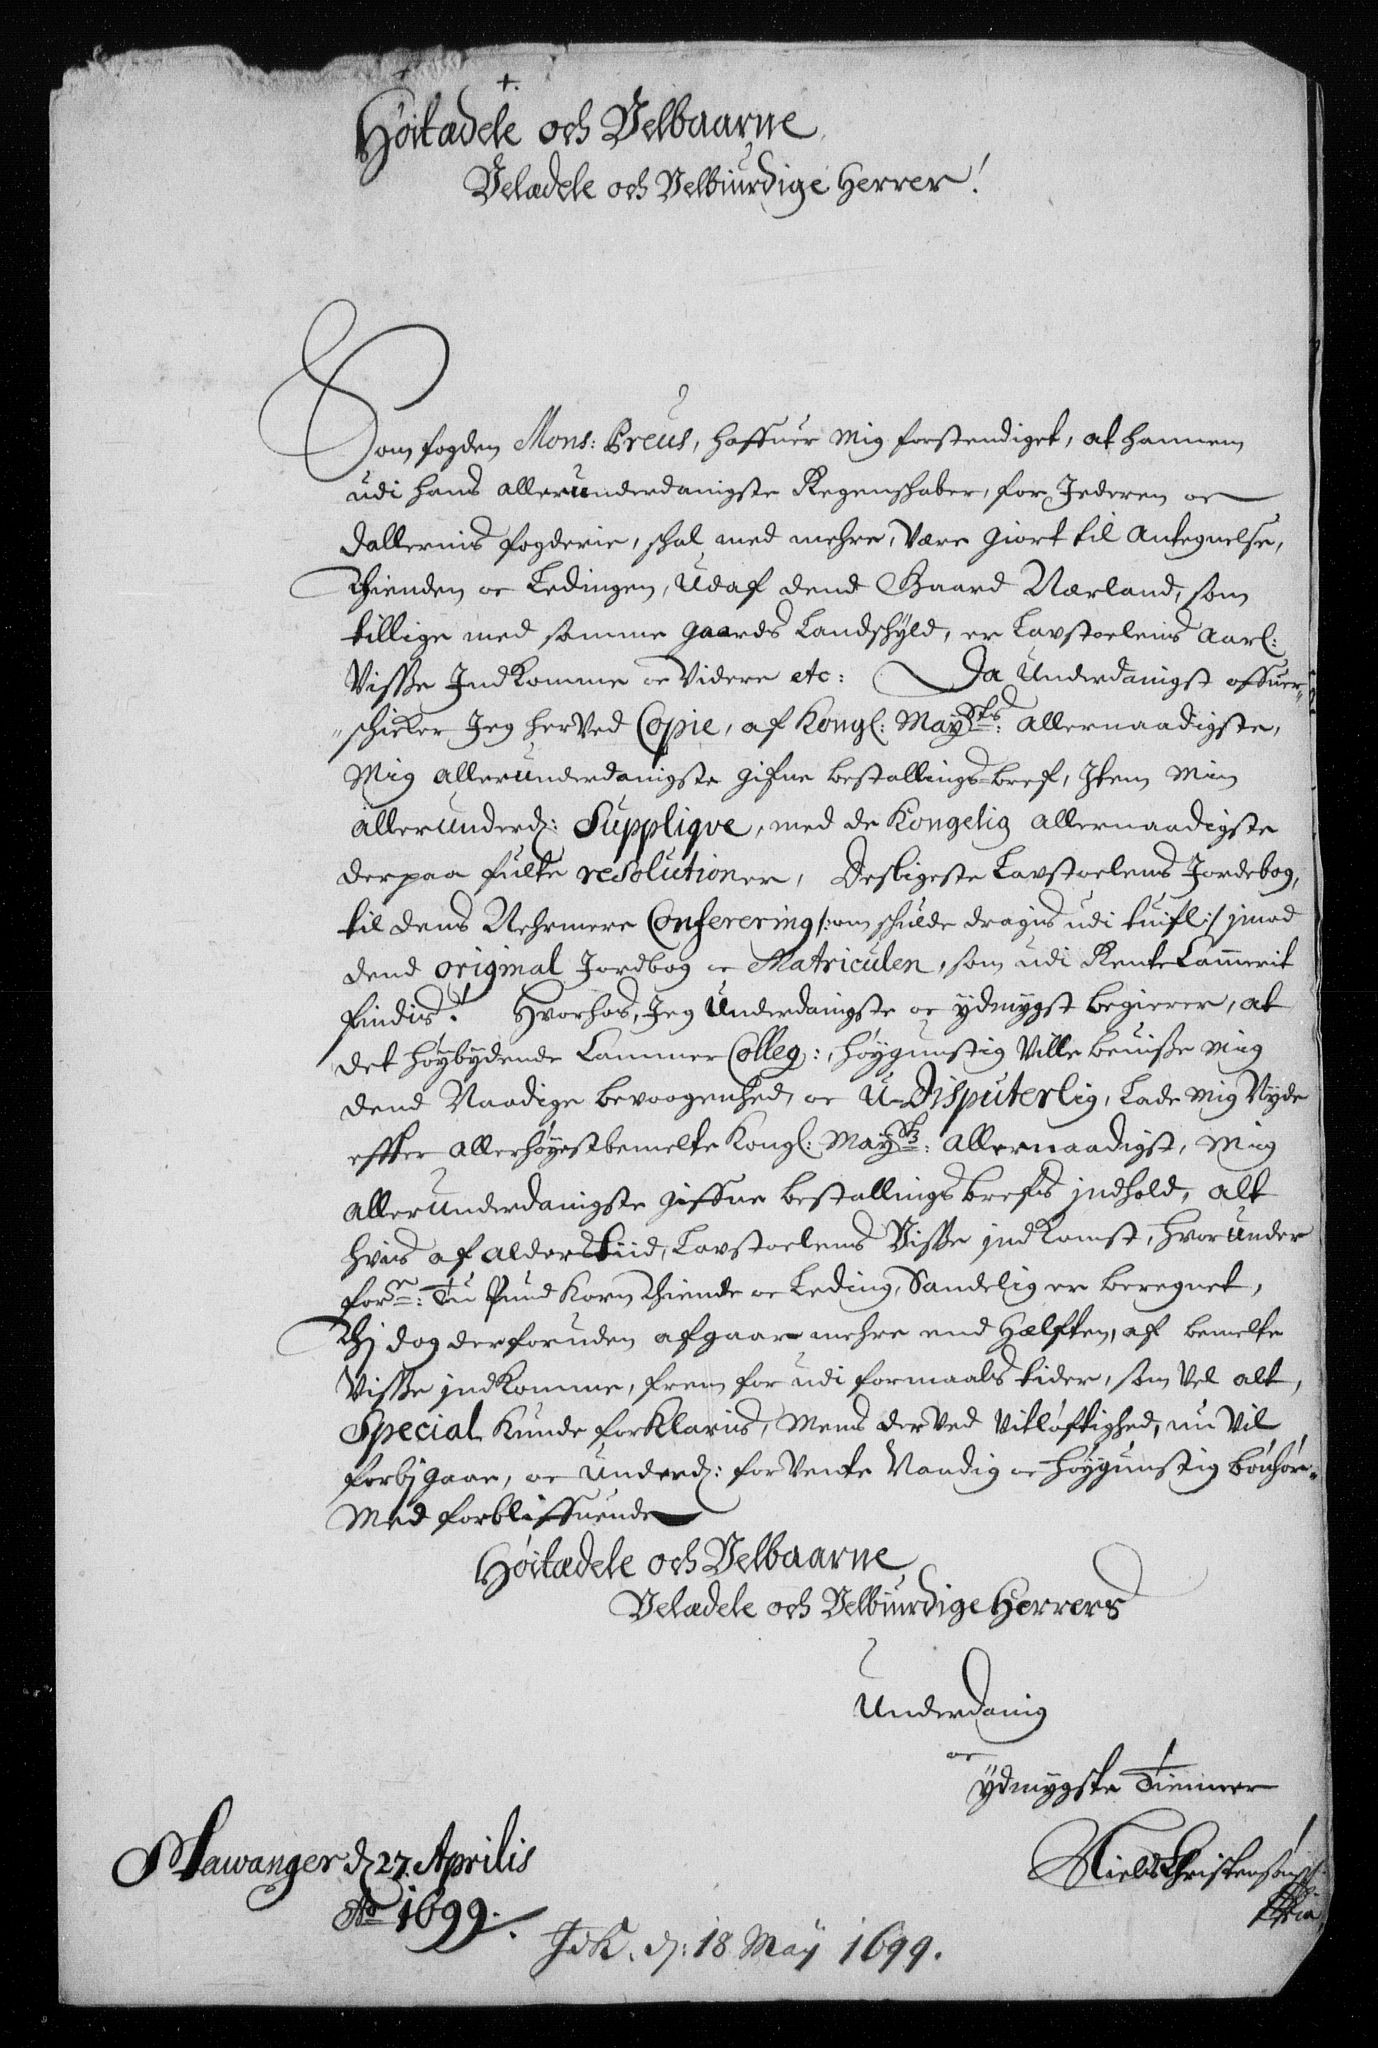 Höitædele och Velbaarne
Velædele och Velbiurdige Herrer!
Som fogden Mons: Preus, haffuer mig forstendiget, at hannem
udi hans allerunderdanigste Regenschaber, for Jederen oc
Dallernis fogderie, schal med mehre, være giort til Antegnelse,
Thienden oc Ledingen, Udaf dend Gaard Nærland, som
tillige med samme gaards Landschyld, er Lavstoelens Aarl:
Visse Indkomme oc Videre etc: Da Underdanigst offuer-
schicker Jeg herved Copie, af Kongl: Maysts: allernaadigste,
Mig allerunderdanigste gifne bestallings-bref, Item min
allerunderd: Supplique, med de Kongelig allernaadigste
derpaa fulte resolutioner, Desligeste Lavstoelens Jordebog,
til dens Nehrmere Conferering /: om schulde dragis udi tuifl :/ imod
dend original Jordbog oc Matriculen, som udi RenteCammerit
findis. Hvorhos, Jeg Underdanigste oc ydmygst begierer, at
det höybydende Cammer Colleg:, höygunstig Ville beuisse mig
dend Naadige bevaagenhed, oc U-Disputerlig, Lade mig Nyde
effter allerhöyestbemelte Kongl: Maystz: allernaadigst, mig
allerunderdanigste giffne bestallings brefs indhold, alt
hvis af alders tiid, Lavstoelens Visse indkomst, hvorunder
forn: Tu Pund Korn Thiende oc Leding, Sandelig er beregnet,
Thi dog derforuden afgaar mehre end Hælften, af bemelte
Visse indkomme, frem for udi formaals tider, som vel alt,
Special kunde forklaris, Mens derved vitlöftighed, nu vil
forbigaae, oc Underd: forvente Naadig oc höygunstig bönhör-
Med forbliffuende
Höitædele och Velbaarne
Velædele och Velbiurdige Herrers
Underdanig
oc
ydmygste Tienner
Niels Christensøn
Stawanger d 27. Aprilis
Ao 1699.
Indk. d: 18 May 1699.